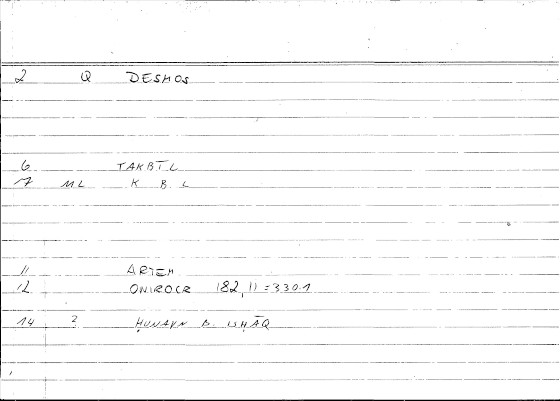 2 Q DESMOS
6 TAKBĪL
7 ML K B L
11 ARTEM
12 ONIROCR 182,11=330.1
14 2 ḤUNAYN B. ISḤĀQ